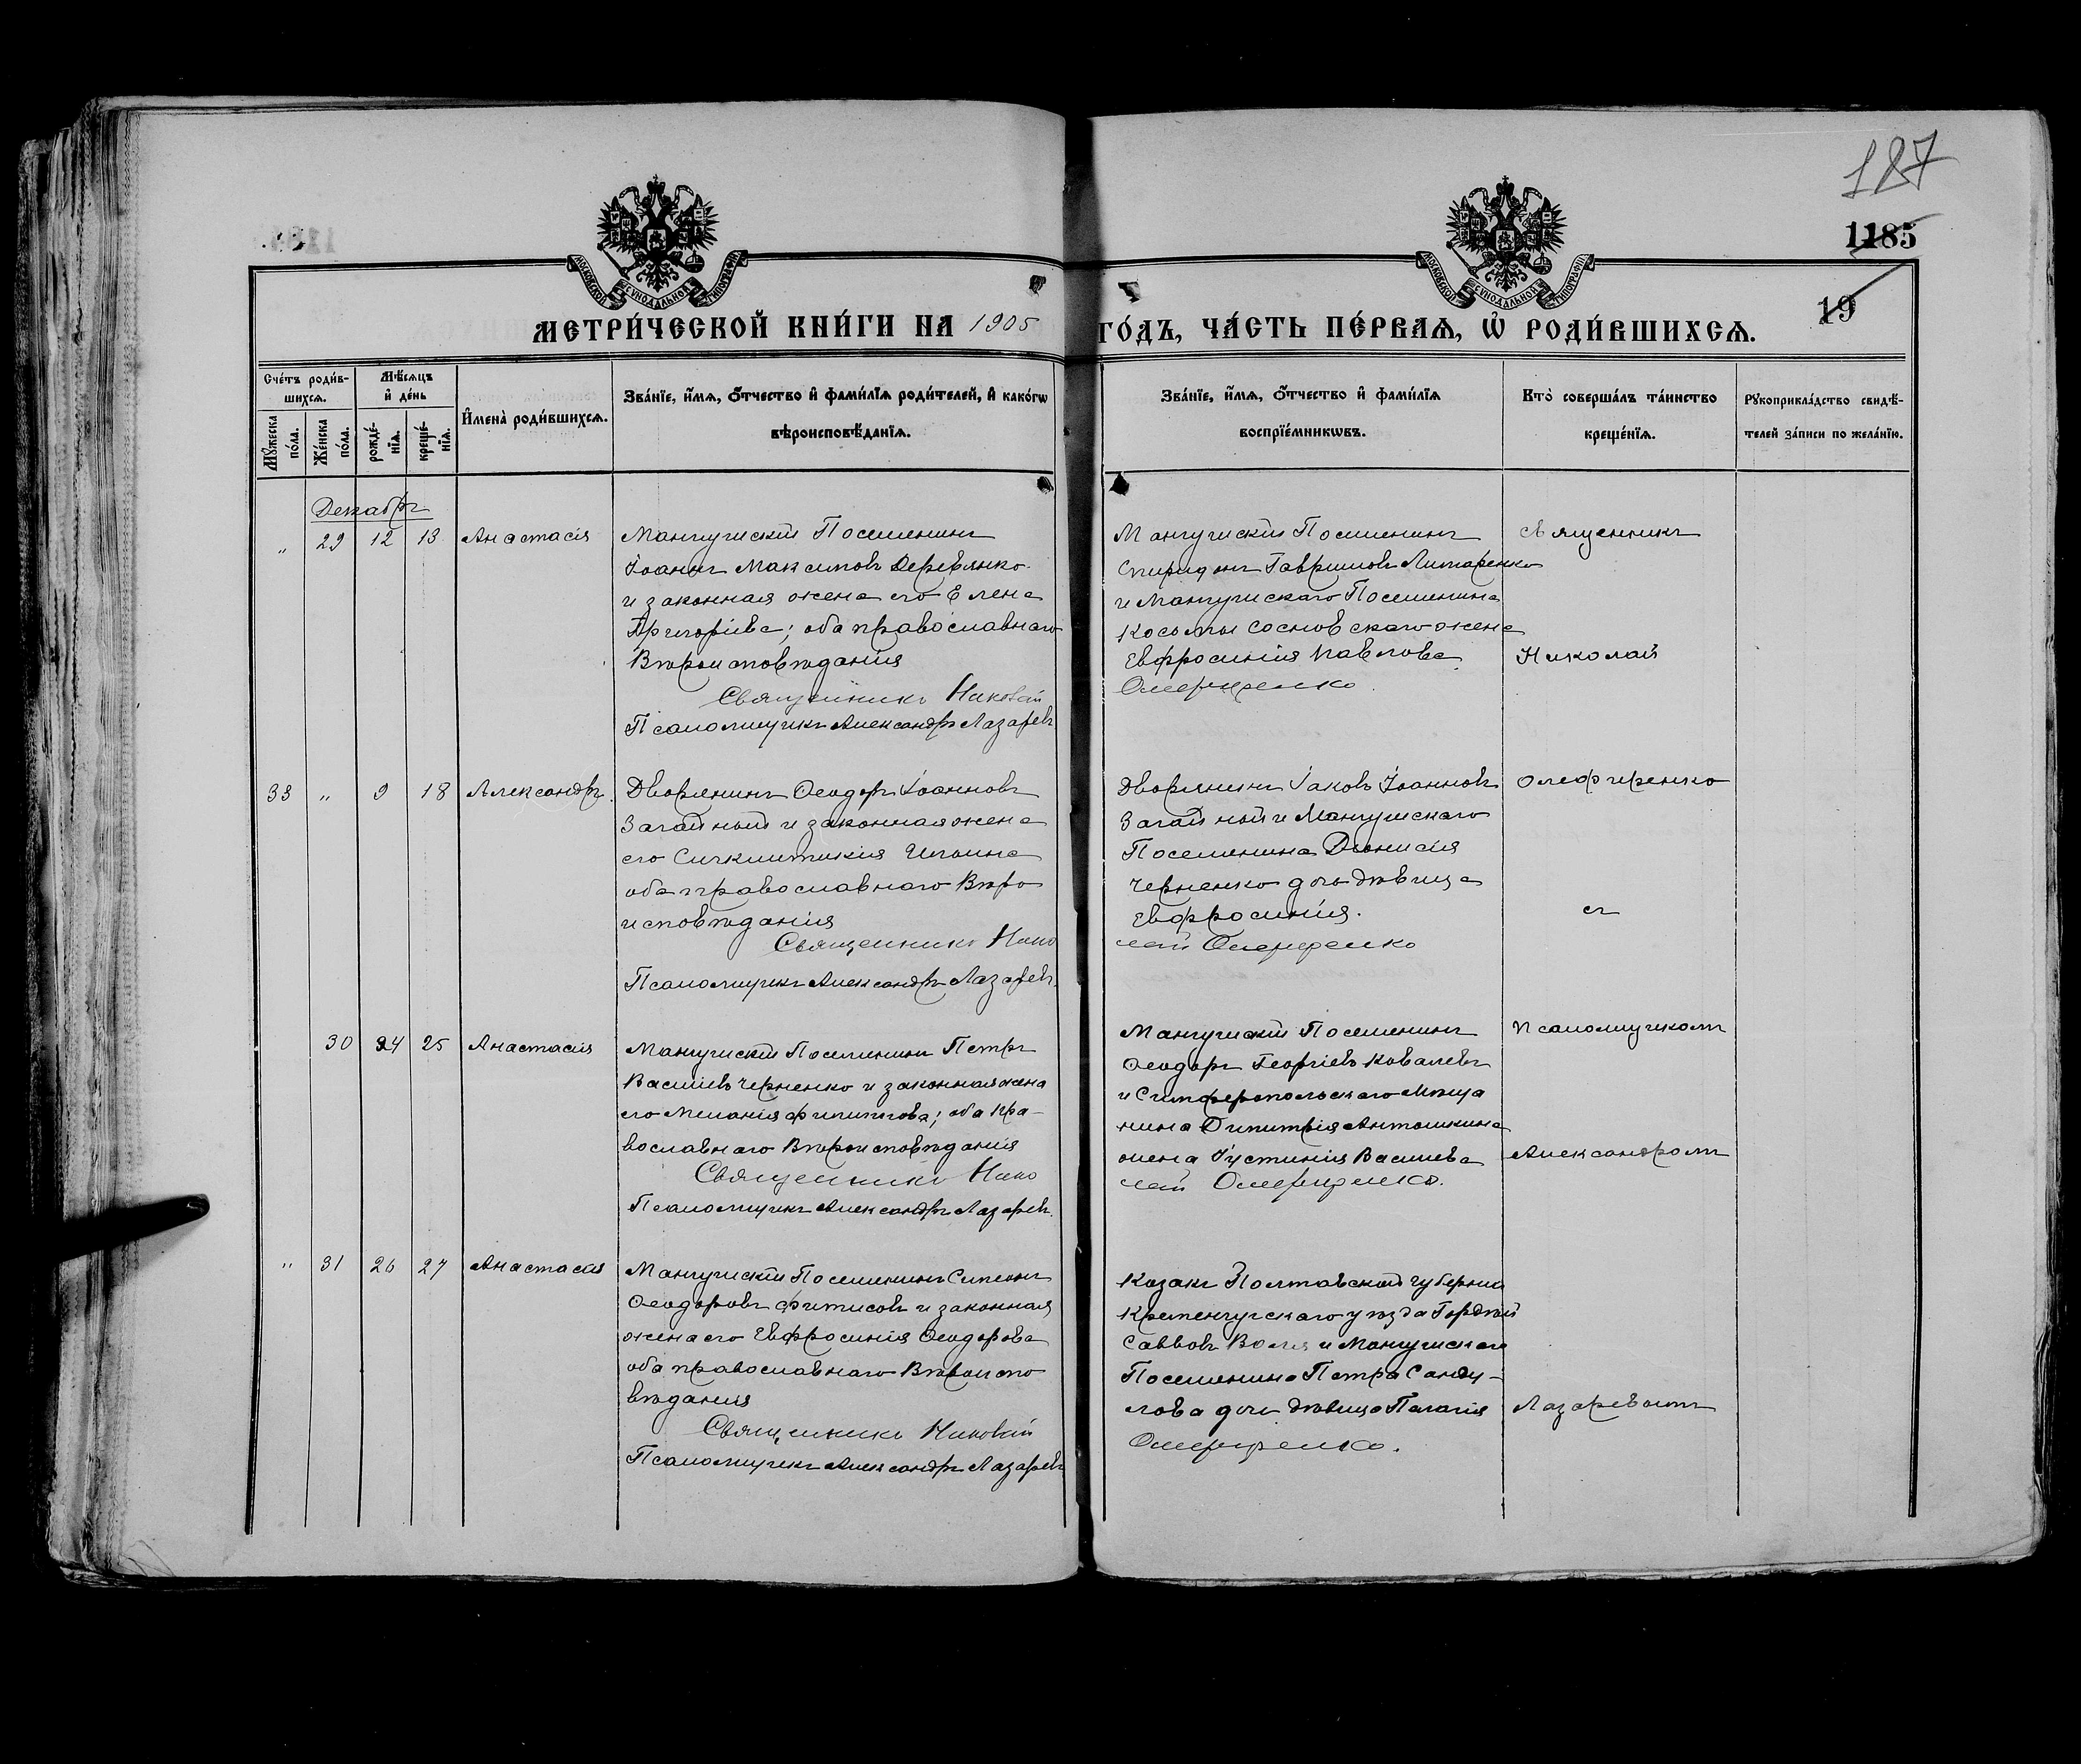 187
1185
19
МОСКОВСКОЙ СѴНОДАЛЬНОЙ ТИПОГРАФІИ
МОСКОВСКОЙ СѴНОДАЛЬНОЙ ТИПОГРАФІИ
МЕТРИ́ЧЕСКОЙ КНИ́ГИ НА 1905 ГО́ДЪ, ЧА́СТЬ ПЕ́РВАѦ, Ѽ РОДИ́ВШИХСѦ.
Сче́тъ роди́в-
шихсѧ.
Мꙋжеска
по́ла.
Же́нска
по́ла.
Мѣ́сѧцъ
и҆ де́нь
рожде́-
нїѧ.
креще́-
нїѧ.
И҆мена̀ роди́вшихсѧ.
Зва́нїе, и҆́мѧ, ѻ҆́тчество и҆ фами́лїѧ роди́телей, и҆ како́гѡ
вѣроисповѣ́данїѧ.
Зва́нїе, и҆́мѧ, ѻ҆́тчество и҆ фами́лїѧ
воспрїе́мникѡвъ.
Кто̀ соверша́лъ та́инство
креще́нїѧ.
Рꙋкоприкла́дство свидѣ́-
телей за́писи по жела́нїю.
Декабрь
" 29 12 13 Анастасія
Мангушскій Поселянинъ
Іоаннъ Максимовъ Деревянко
и законная жена его Елена
Григоріева; оба православнаго
Вѣроисповѣданія
Священникъ Николай
Псаломщикъ Александръ Лазаревъ
Мангушскій Поселянинъ
Спиридонъ Гавриловъ Литаренко
и Мангушскаго Поселянина
Косьмы Сосновскаго жена
Евфросинія Павлова
Олефиренко
Священникъ
Николай
33 " 9 18 Александръ
Дворянинъ Ѳеодоръ Іоанновъ
Загайный и законная жена
его Синклитикія Ильина
оба православнаго Вѣро
исповѣданія
Священникъ Нико
Псаломщикъ Александръ Лазаревъ
Дворянинъ Іаковъ Іоанновъ
Загайный и Мангушскаго
Поселянина Діонисія
Черненко дочь дѣвица
Евфросинія.
лай Олефиренко
Олефиренко
съ
30 24 25 Анастасія
Мангушскій Поселянинъ Петръ
Василіевъ Черненко и законная жена
его Меланія Филиппова; оба Пра-
вославнаго Вѣроисповѣданія
Священникъ Нико
Псаломщикъ Александръ Лазаревъ
Мангушскій Поселянинъ
Ѳеодоръ Георгіевъ Ковалевъ
и Симферопольскаго Мѣща
нина Димитрія Антошкина
жена Іустинія Василіева
лай Олефиренко.
Псаломщикомъ
Александромъ
" 31 26 27 Анастасія
Мангушскій Поселянинъ Симеонъ
Ѳеодоровъ Фитисовъ и законная
жена его Евфросинія Ѳеодорова
оба православнаго Вѣроиспо
вѣданія
Священникъ Николай
Псаломщикъ Александръ Лазаревъ
Козакъ Полтавской губерніи
Кременчугскаго уѣзда Гордѣй
Саввовъ Воля и Мангушскаго
Поселянина Петра Санду-
лова дочь дѣвица Пелагія
Олефиренко.
Лазаревымъ